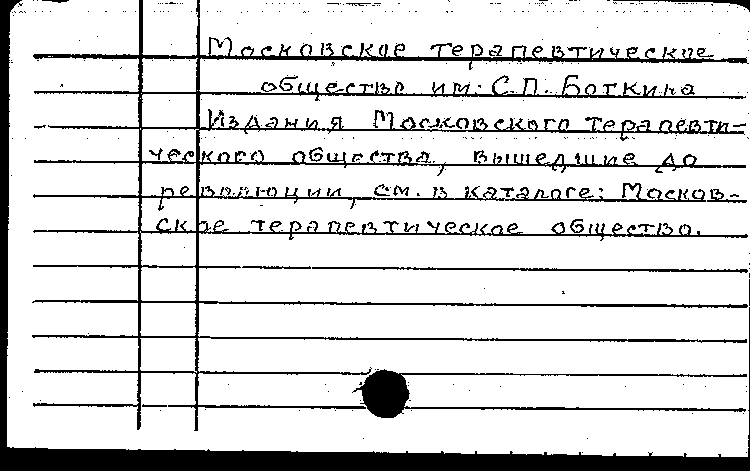 Московское терапевтическое
общество им. С.П. Боткина
Издания Московского терапевти-
ческого общества, вышедшие до
революции, см. в каталоге: Москов-
ское терапевтическое общество.